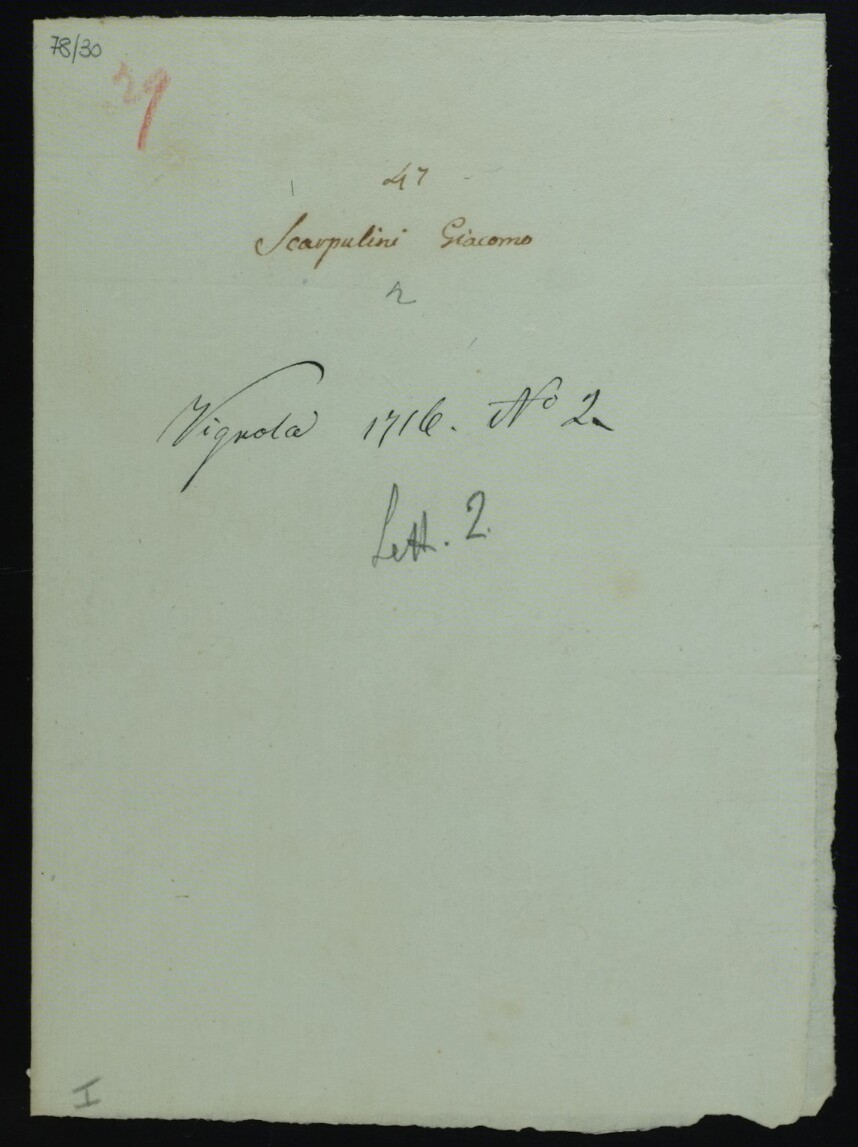 78/30
29
47
Scarpulini Giacomo
2
Vignola 1716. No 2
Lett. 2.
I